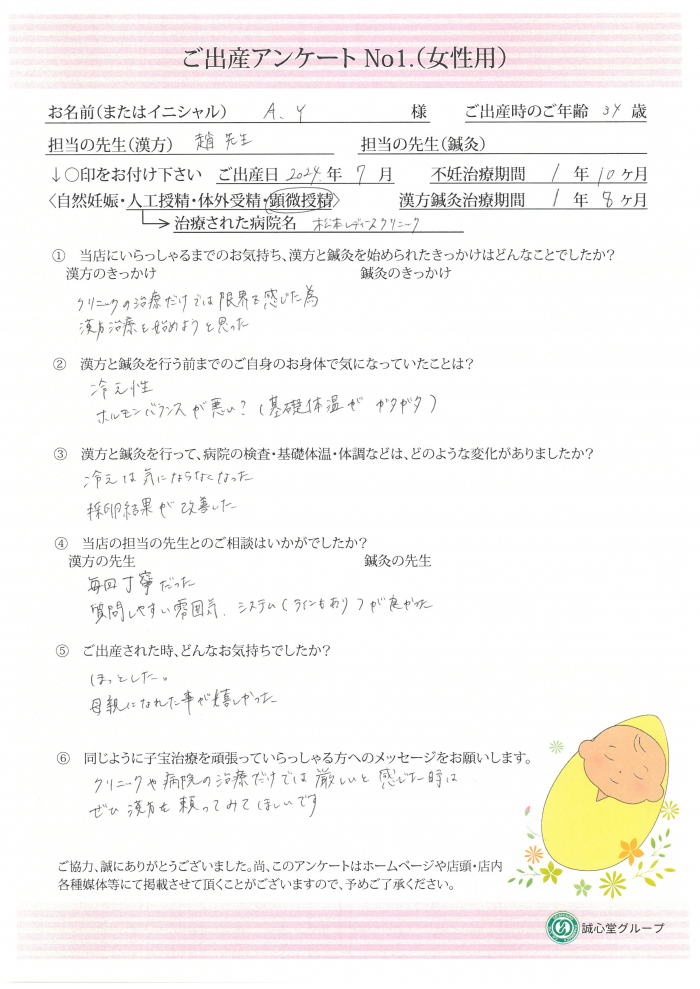 ご出産アンケート No1.（女性用）
お名前（またはイニシャル） A、Y 様 ご出産時のご年齢 34 歳
担当の先生（漢方） 趙先生 担当の先生（鍼灸）
↓○印をお付け下さい ご出産日 2024 年 7 月 不妊治療期間 1 年 10 ヶ月
〈自然妊娠・人工授精・体外受精・顕微授精〉 漢方鍼灸治療期間 1 年 8 ヶ月
治療された病院名 松本レディースクリニック
① 当店にいらっしゃるまでのお気持ち、漢方と鍼灸を始められたきっかけはどんなことでしたか？
漢方のきっかけ 鍼灸のきっかけ
クリニックの治療だけでは限界を感じた為
漢方治療を始めようと思った
② 漢方と鍼灸を行う前までのご自身のお身体で気になっていたことは？
冷え性
ホルモンバランスが悪い？（基礎体温が ガタガタ）
③ 漢方と鍼灸を行って、病院の検査・基礎体温・体調などは、どのような変化がありましたか？
冷えは気にならなくなった
採卵結果が改善した
④ 当店の担当の先生とのご相談はいかがでしたか？
漢方の先生 鍼灸の先生
毎回丁寧だった
質問しやすい雰囲気、システム（ラインもあり）が良かった
⑤ ご出産された時、どんなお気持ちでしたか？
ほっとした。
母親になれた事が嬉しかった
⑥ 同じように子宝治療を頑張っていらっしゃる方へのメッセージをお願いします。
クリニックや病院の治療だけでは厳しいと感じた時は
ぜひ漢方を頼ってみてほしいです
ご協力、誠にありがとうございました。尚、このアンケートはホームページや店頭・店内
各種媒体等にて掲載させて頂くことがございますので、予めご了承ください。
誠心堂グループ